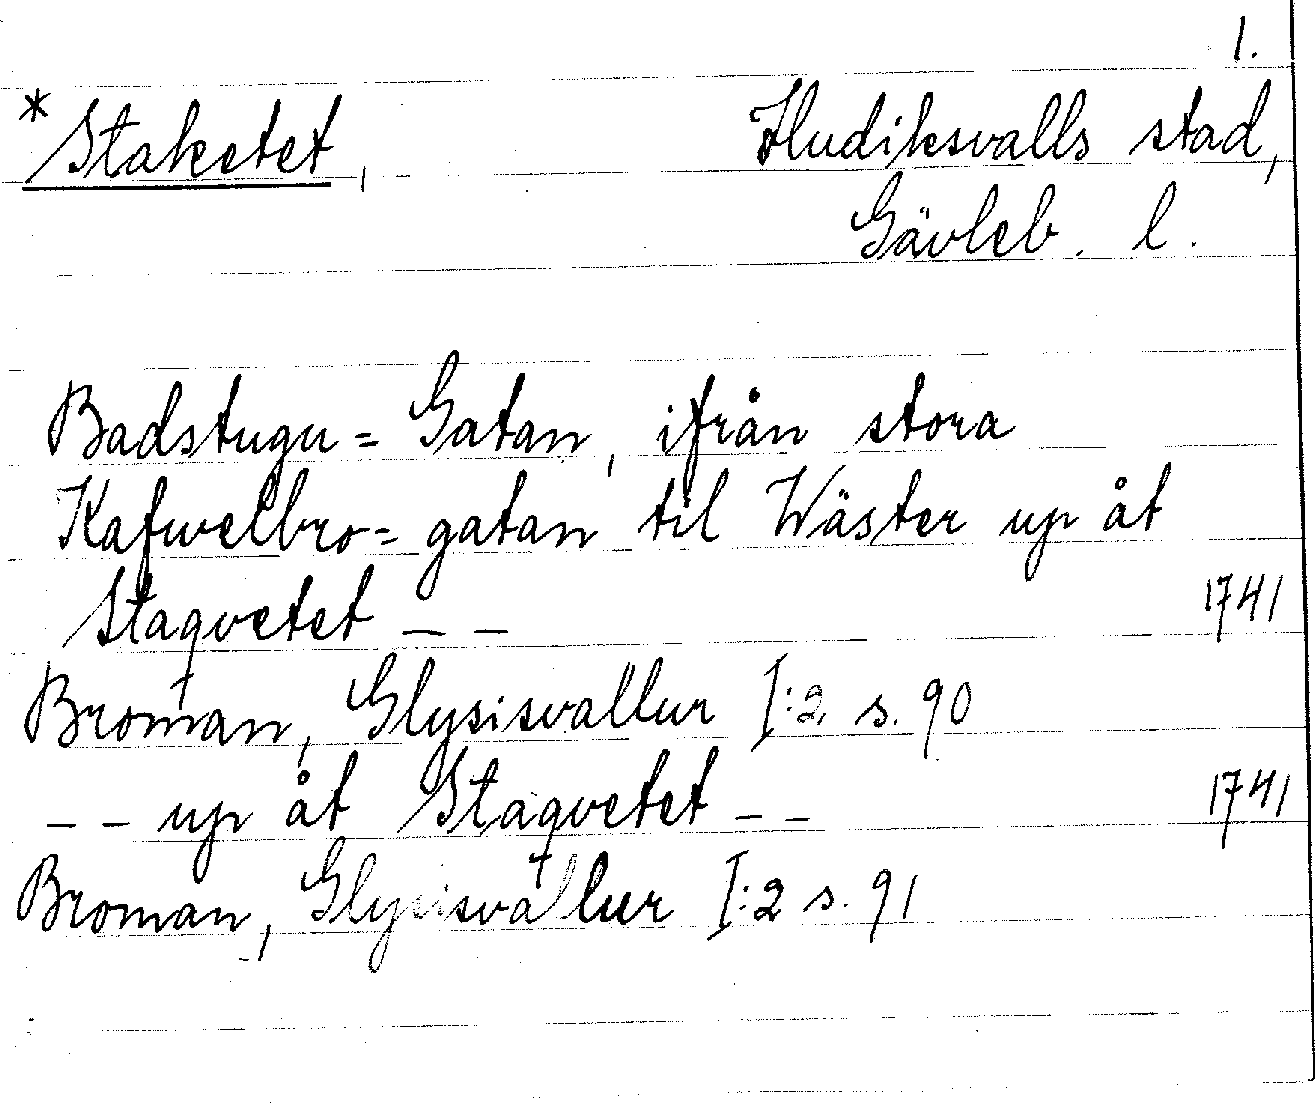 1.
*Staketet, Hudiksvalls stad,
Gävleb. l.
Badstugu= Gatan, ifrån stora
Kafwelbro= gatan til Wäster up åt
Staqvetet — — 1741
Broman, Glysisvallur I:2 s. 90
— — up åt Staqvetet — — 1741
Broman, Glysisvallur I:2 s. 91